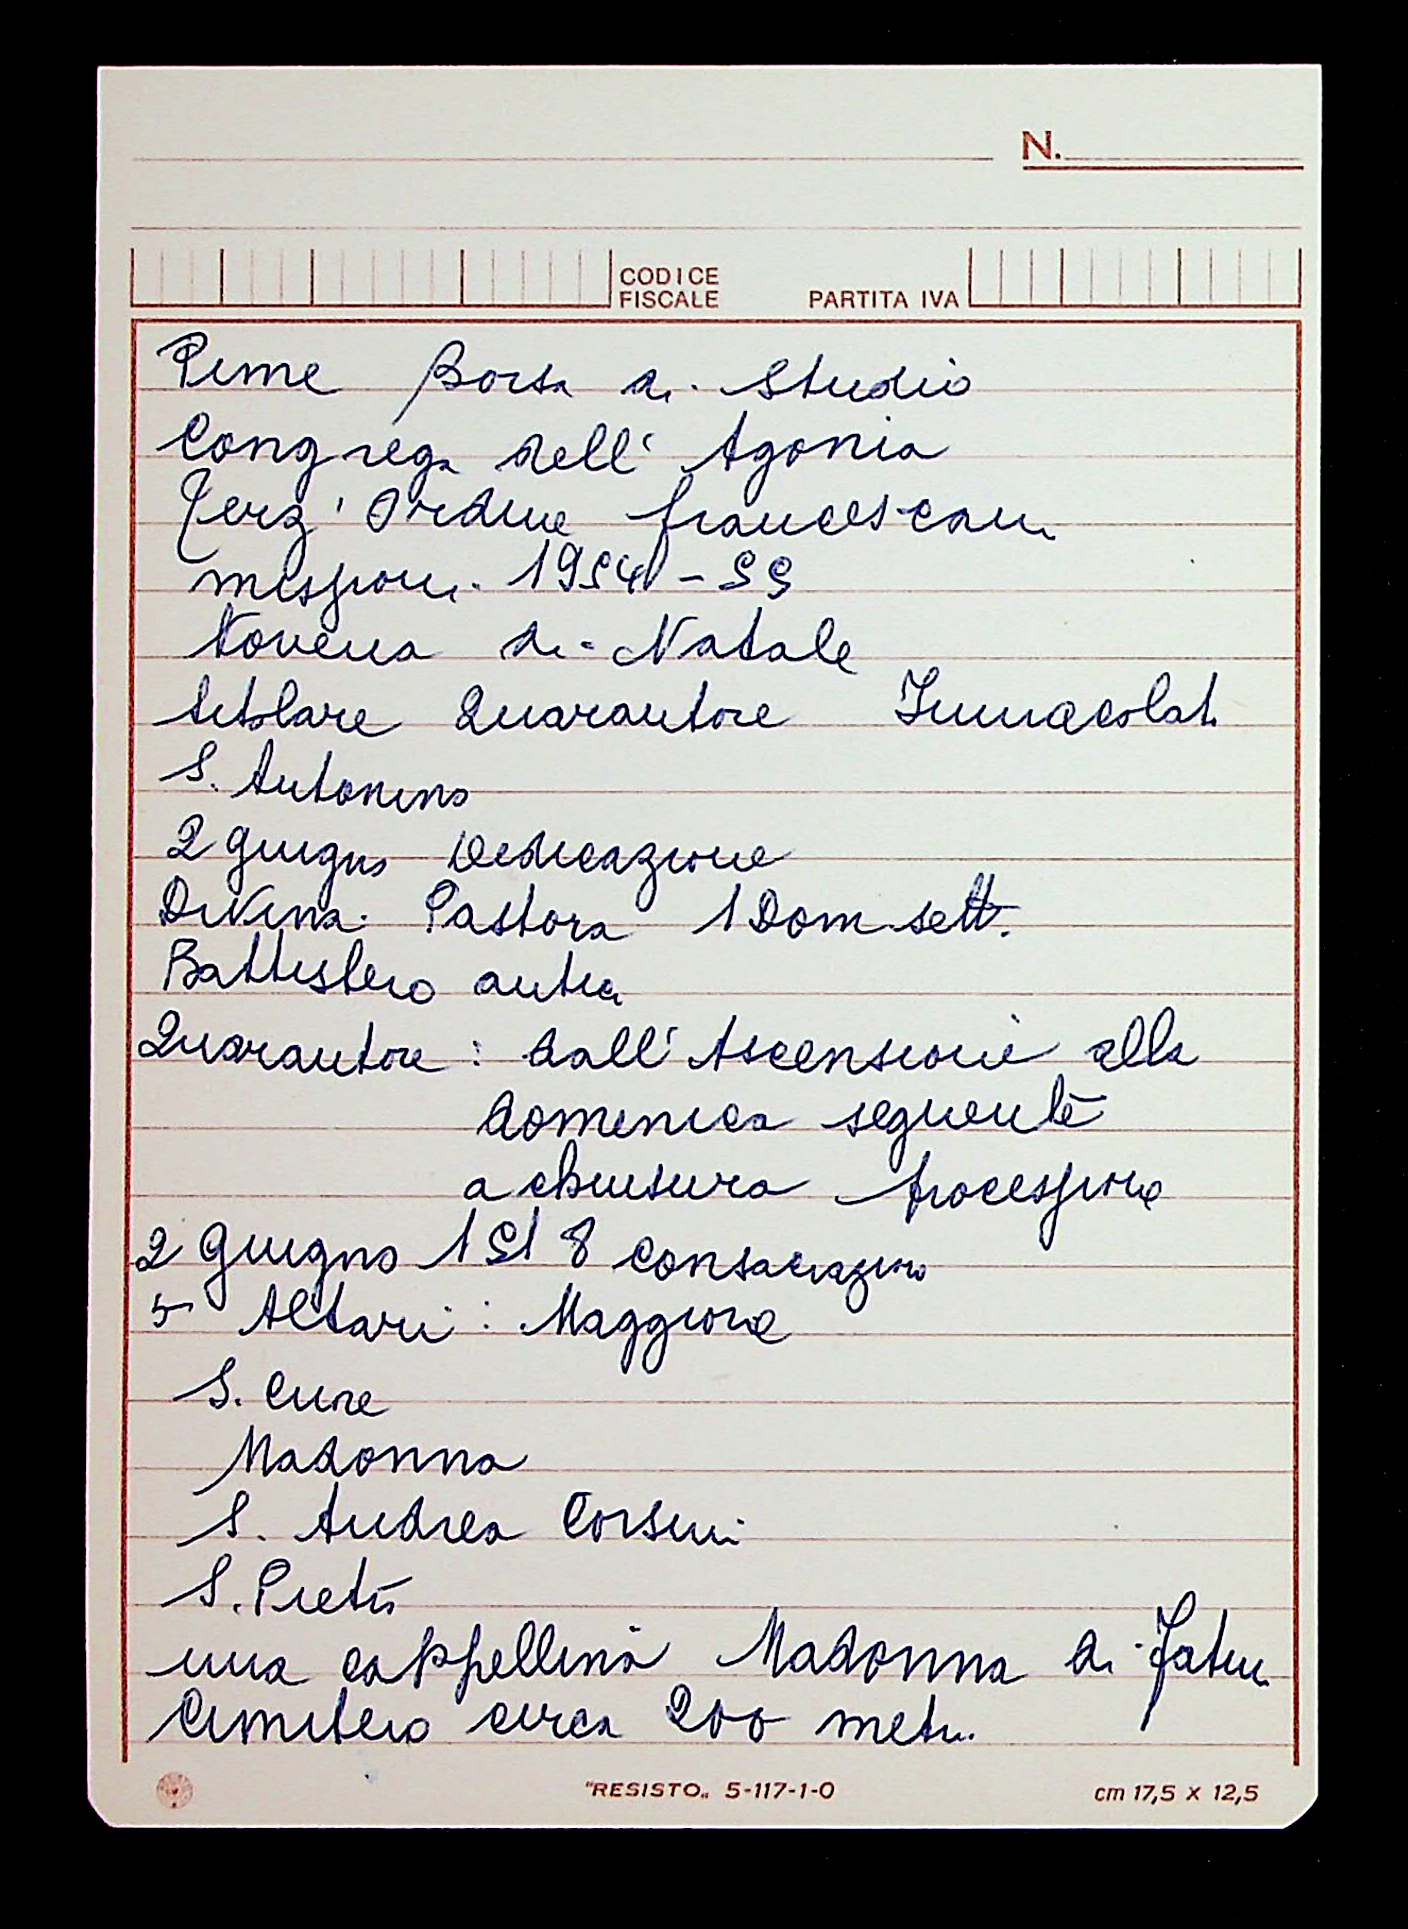 N.
CODICE FISCALE PARTITA IVA
Pime Borsa di Studio
Congrega dell' Agonia
Terz' Ordine francescan
missioni 1954-55
Novena di Natale
titolare Quarantore Immacolat.
S. Antonino
2 giugno Dedicazione
Divina Pastora 1 Dom sett.
Battistero antic
Quarantore : dall' Ascensione alla
domenica seguente
a chiusura processione
2 Giugno 1518 consacrazione
5 Altari : Maggiore
S. Cure
Madonna
S. Andrea Corsini
S. Pietà
una cappellina Madonna di Fatim
Cimitero circa 200 metri
"RESISTO„ 5-117-1-0 cm 17,5 x 12,5